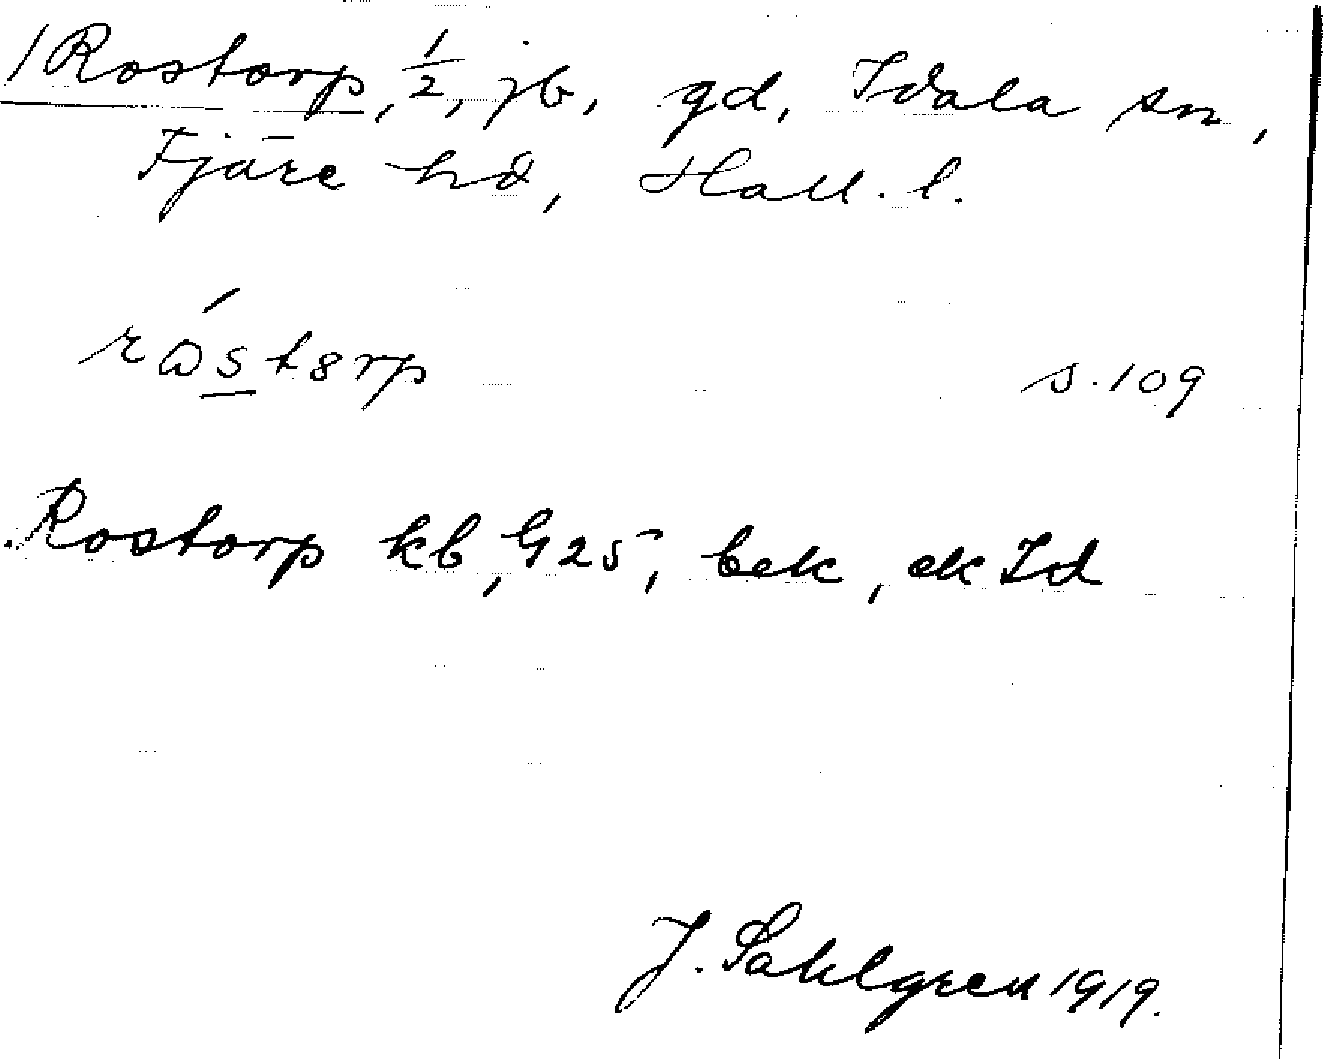 /Rostorp, 1/2, jb, gd, Idala sn,
Fjäre hd, Hall. l.
rωstorp s. 109
Rostorp kb, G25, bek, ek Id
J. Sahlgren 1919.